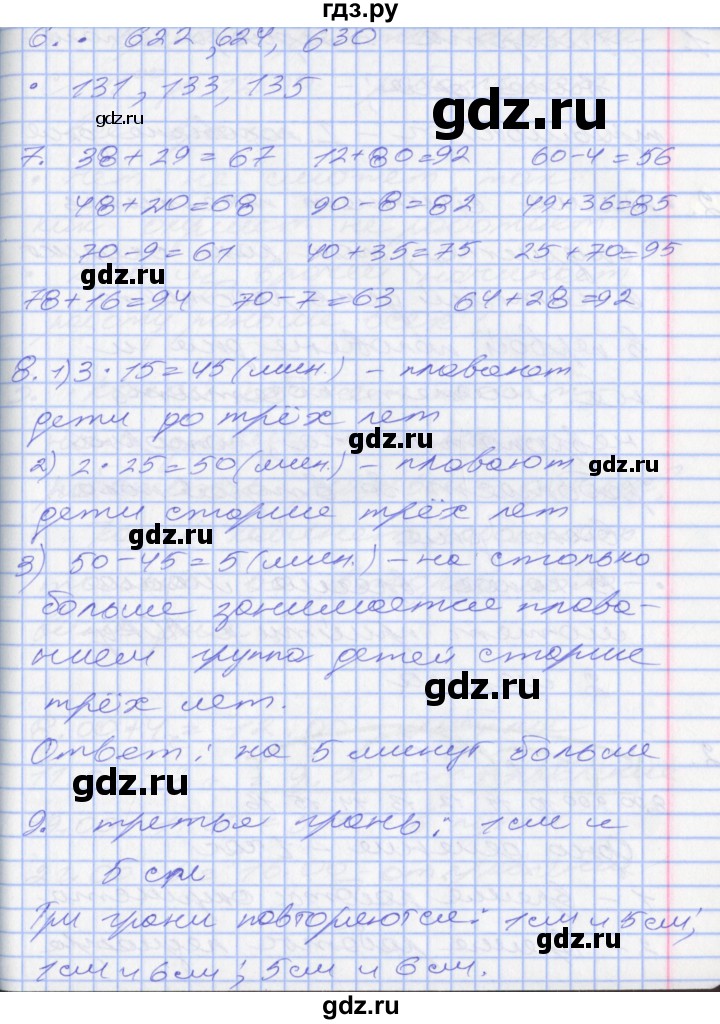 гдз.ру
6. • 622, 624, 630
• 131, 133, 135
gdz.ru
gdz.ru
7. 38+29=67 12+80=92 60-4=56
48+20=68 90-8=82 49+36=85
70-9=61 40+35=75 25+70=95
gdz.ru
gdz.ru
78+16=94 70-7=63 64+28=92
8. 1) 3·15=45(мин.) – плавают
дети до трёх лет
gdz.ru
2) 2·25=50(мин.) – плавают
gdz.ru
дети старше трёх лет
gdz.ru
3) 50-45=5(мин.) – на столько
больше занимается плава-
нием группа детей старше
gdz.ru
трёх лет.
Ответ: на 5 минут больше
gdz.ru
9. третья грань: 1см и
5 см
Три грани повторяются: 1см и 5см;
gdz.ru
1см и 6см; 5см и 6см.
gdz.ru